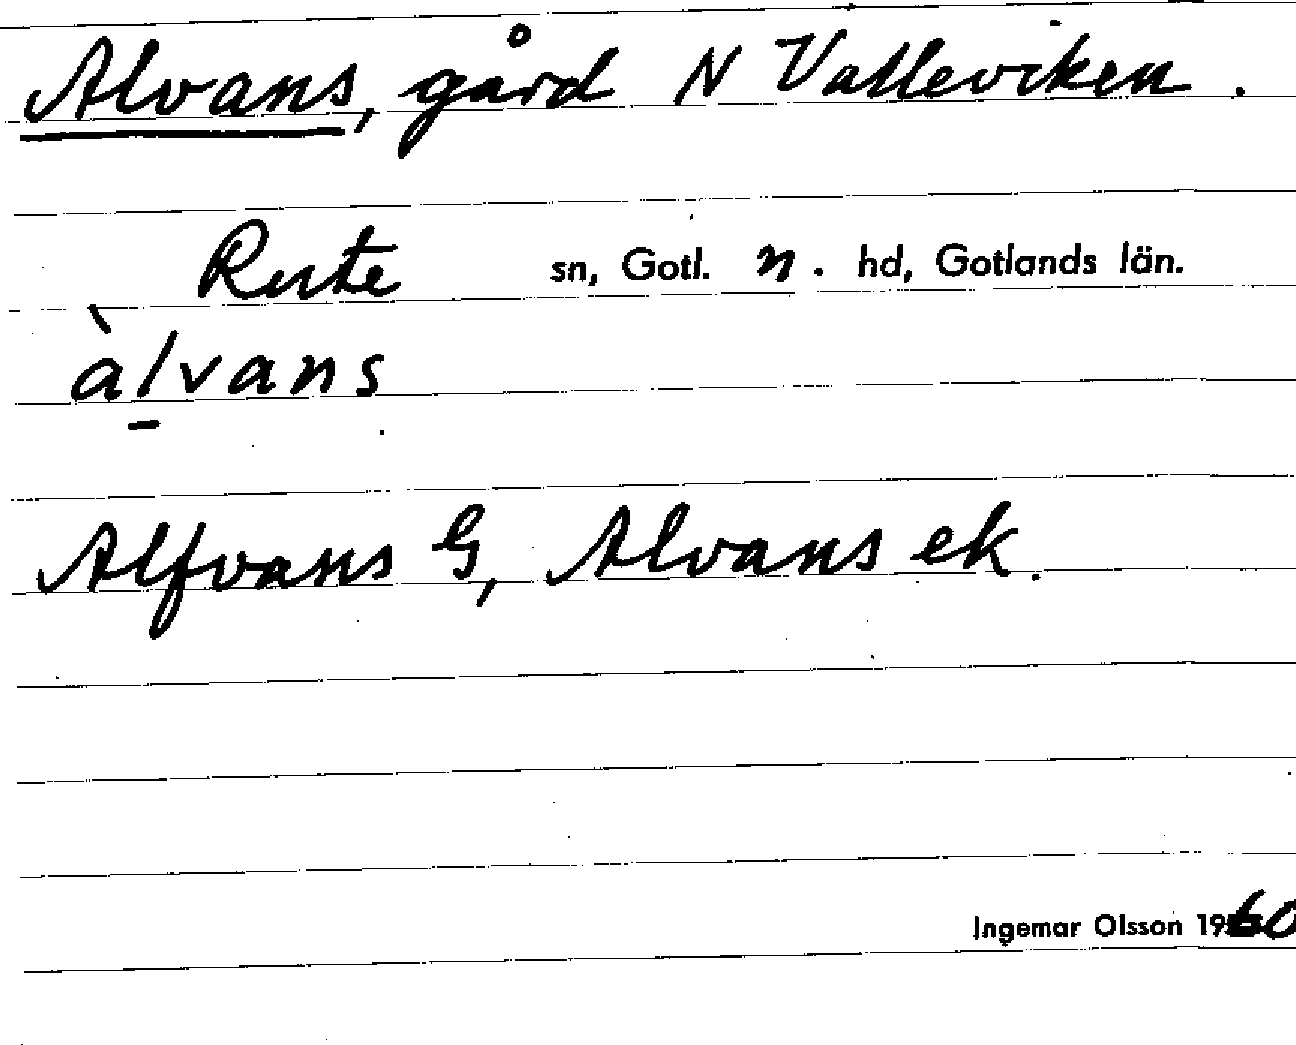 Alvans, gård N Valleviken.
Rute sn, Gotl. n. hd, Gotlands län.
àl̲vans
Alfvans G, Alvans ek.
Ingemar Olsson 1960